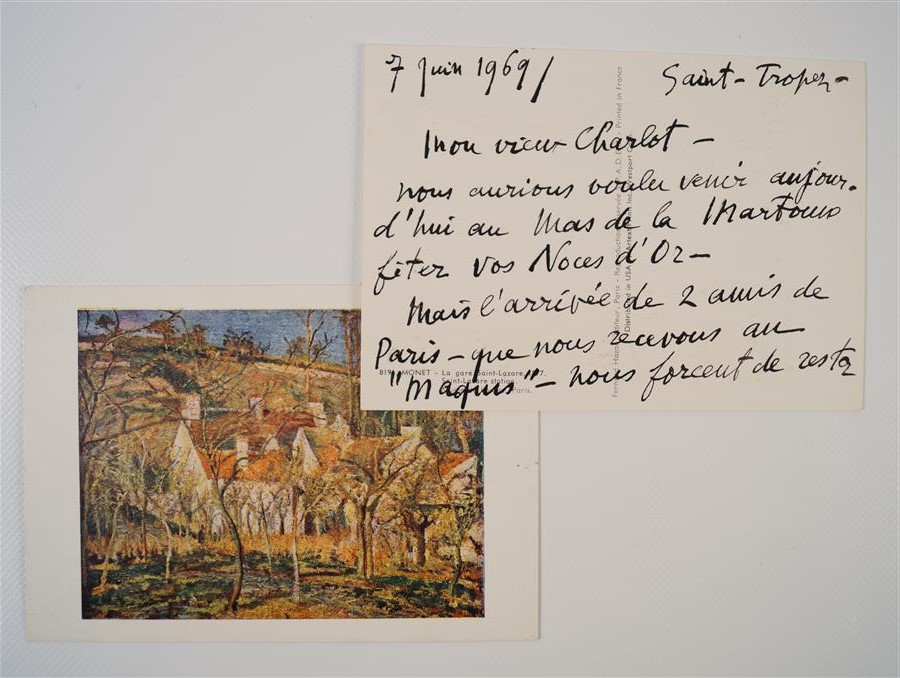 7 juin 1969/ Saint-Tropez-
Mon vieux Charlot -
nous aurions voulu venir aujour-
d'hui au Mas de la Martoune
fêter vos Noces d'Or -
Mais l'arrivée de 2 amis de
Paris - que nous recevons au
"Maquis" - nous forcent de rester
819 MONET - La gare Saint-Lazare
Saint-Lazare station
Paris.
Printed in France
Distributed in USA